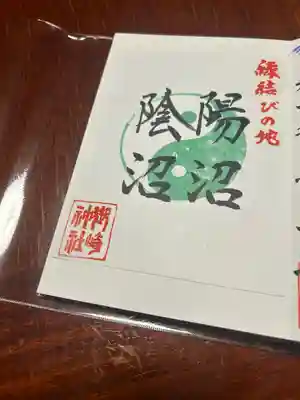 縁結びの地
陽沼
陰沼
神社